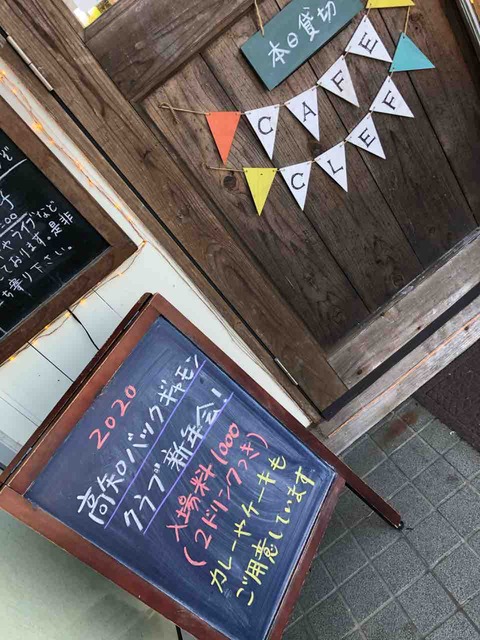 本日貸切
CAFE
CLEF
2020
高知バックギャモン
クラブ新年会!
入場料1000
(2ドリンクつき)
カレーやケーキも
ご用意しています
やライブなど
ております。是非
ち寄り下さい。